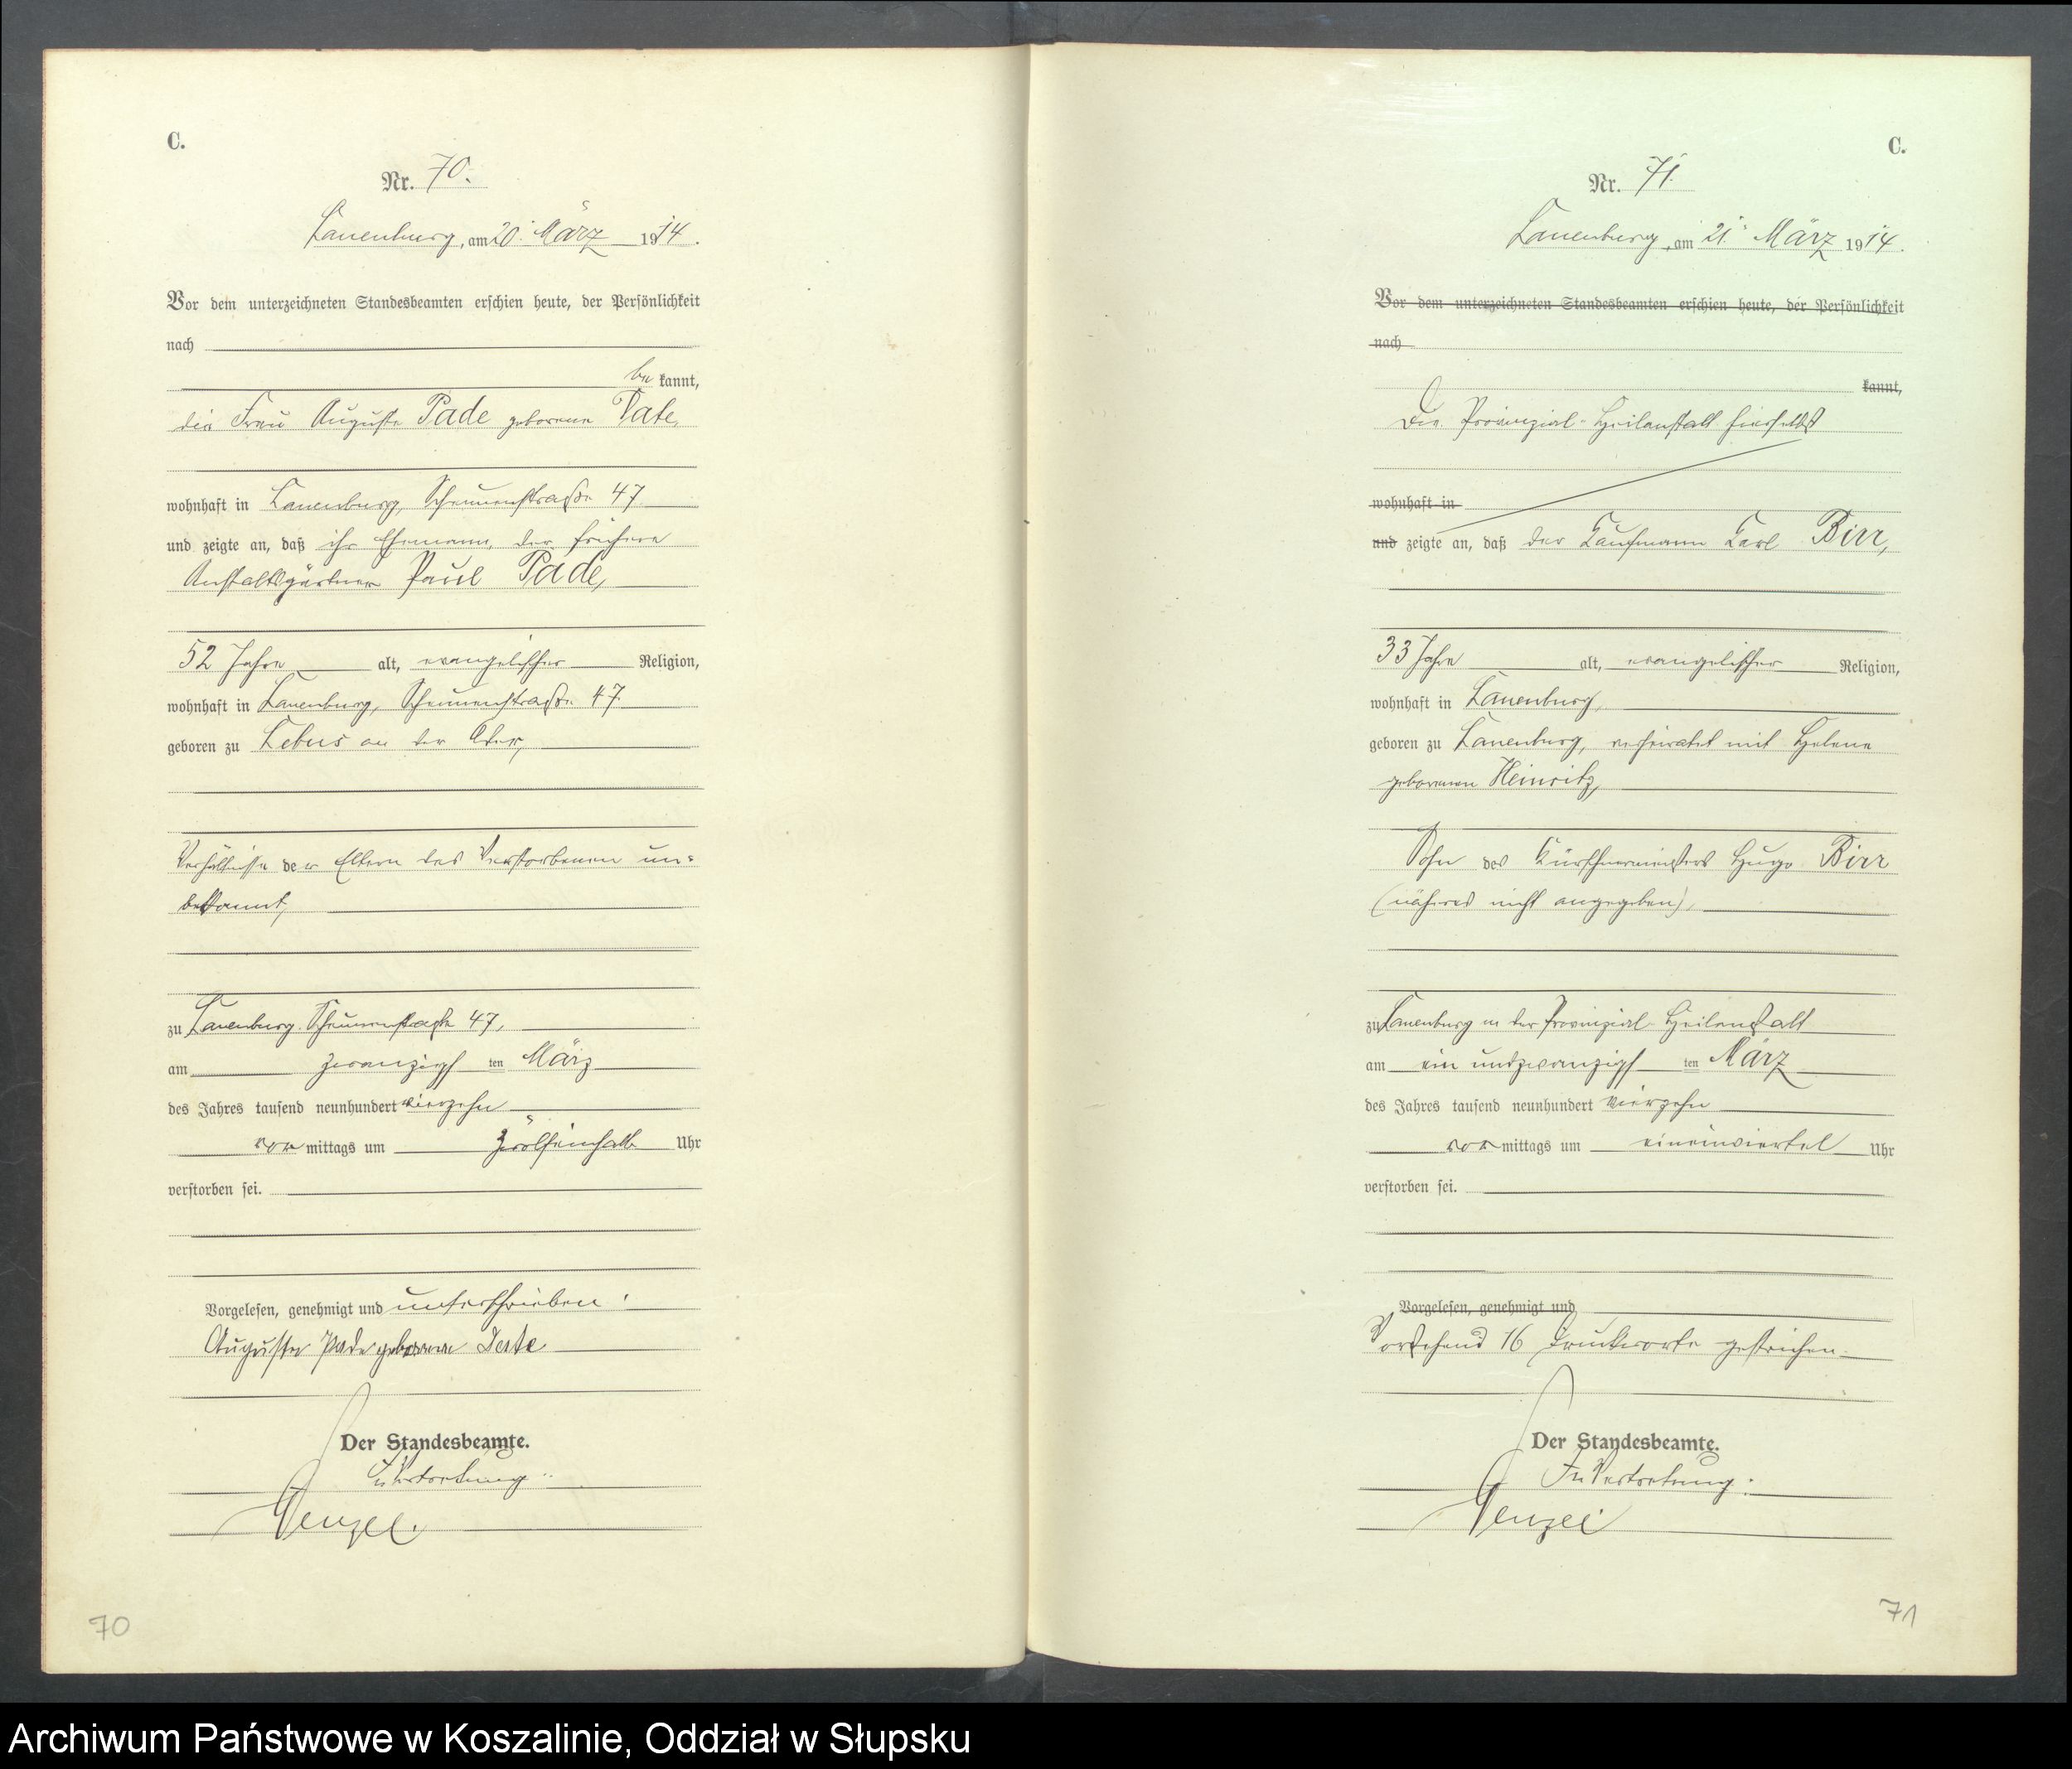 C.
Nr. 70.
Lauenburg, am 20. März 1914.
Vor dem unterzeichneten Standesbeamten erschien heute, der Persönlichkeit
nach
be kannt,
die Frau Auguste Pade geborene
wohnhaft in Lauenburg, Scheunenstraße 47
und zeigte an, daß ihr Ehemann, der frühere
Anstaltsgärtner Paul Pade,
52 Jahre alt, evangelischer Religion,
wohnhaft in Lauenburg, Scheunenstraße 47.
geboren zu Lebus an der Oder,
Verhältnisse der Eltern des Verstorbenen un=
bekannt,
zu Lauenburg Scheunenstraße 47,
am zwanzigsten März
des Jahres tausend neunhundert vierzehn
vor mittags um zwölfeinhalb Uhr
verstorben sei.
Vorgelesen, genehmigt und unterschrieben:
Auguste Pade geborene
Der Standesbeamte.
In Vertretung:
70
C.
Nr. 71.
Lauenburg, am 21. März 1914.
Vor dem unterzeichneten Standesbeamten erschien heute, der Persönlichkeit
nach
kannt,
Die Provinzial-Heilanstalt hierselbst
wohnhaft in
und zeigte an, daß der Kaufmann Karl Birr,
33 Jahre alt, evangelischer Religion,
wohnhaft in Lauenburg,
geboren zu Lauenburg, verheiratet mit Helene
geborenen Heinritz,
Sohn des Kürschnermeisters Hugo Birr
(näheres nicht angegeben),
zu Lauenburg in der Provinzial-Heilanstalt
am ein undzwanzigsten März
des Jahres tausend neunhundert vierzehn
vor mittags um eineinviertel Uhr
verstorben sei.
Vorgelesen, genehmigt und
Vorstehend 16 Druckworte gestrichen.
Der Standesbeamte.
In Vertretung:
71
Archiwum Państwowe w Koszalinie, Oddział w Słupsku